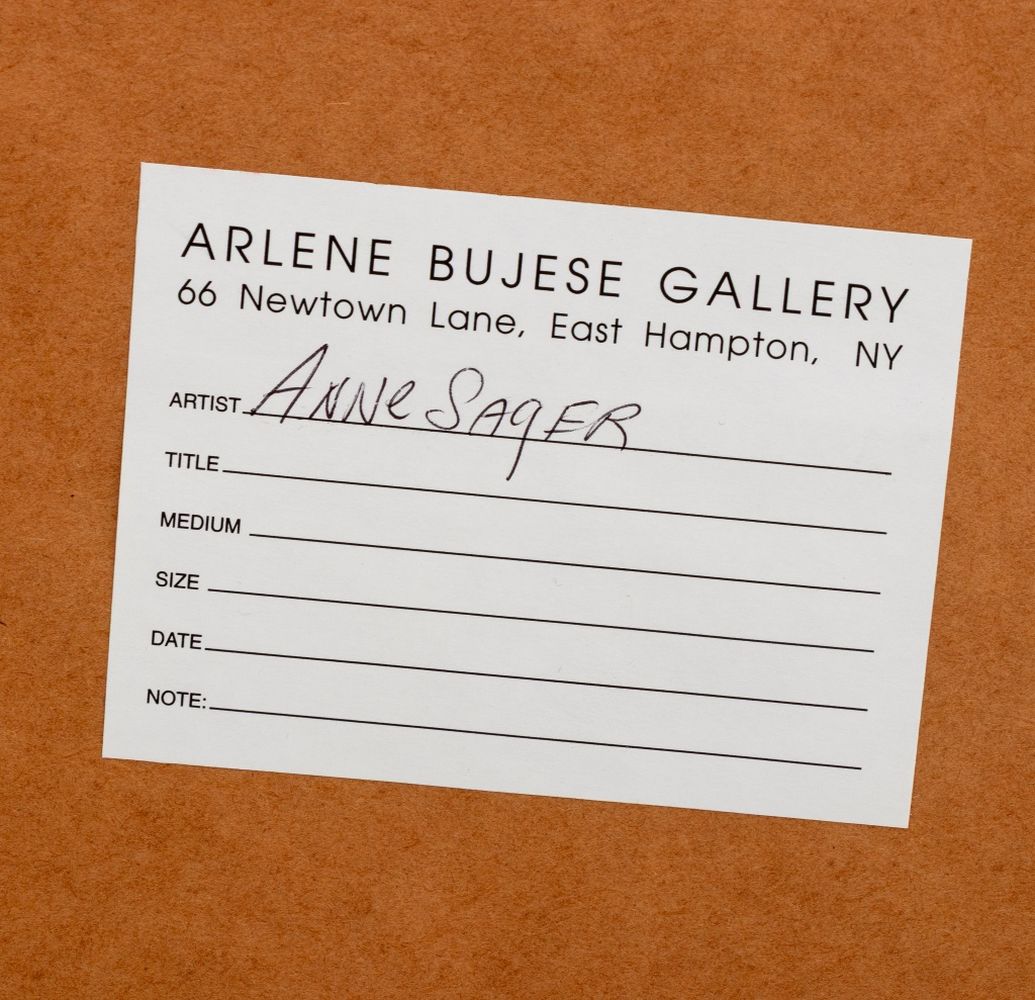 ARLENE BUJESE GALLERY
66 Newtown Lane, East Hampton, NY
ARTIST Anne Sager
TITLE
MEDIUM
SIZE
DATE
NOTE: